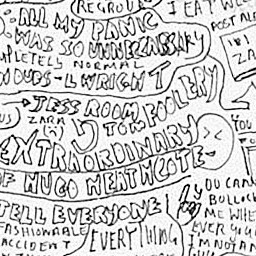 REGROUP
I EAT WEE
ALL MY PANIC
POST AL
WAS SO UNNECESSARY
COMPLETELY NORMAL
DUDES - L WRIGHT
JESS ROOM
TOM FOOLERY
ZARA
YOU
EXTRAORDINARY
OF HUGO HEATHCOTE
TELL EVERYONE!
FASHIONABLE
ACCIDENT
EVERYTHING
OU CAN
BULLOCK
ME WHE
EVER YOU
IM NOT AN